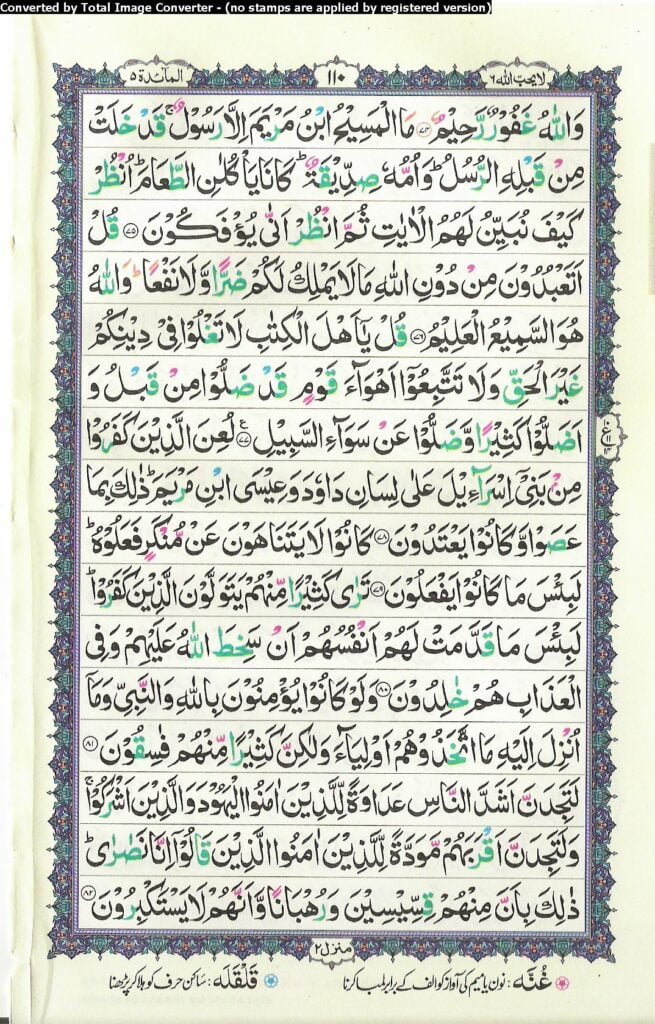 Converted by Total Image Converter - (no stamps are applied by registered version)
لا یحب اللہ ٦ ١١٠ المآئدة ٥
وَاللّٰهُ غَفُوْرٌ رَّحِيْمٌ ﴿٧٤﴾ مَا الْمَسِيْحُ ابْنُ مَرْيَمَ اِلَّا رَسُوْلٌ ۚ قَدْ خَلَتْ
مِنْ قَبْلِهِ الرُّسُلُ ؕ وَاُمُّهٗ صِدِّيْقَةٌ ؕ كَانَا يَاْكُلٰنِ الطَّعَامَ ؕ اُنْظُرْ
كَيْفَ نُبَيِّنُ لَهُمُ الْاٰيٰتِ ثُمَّ انْظُرْ اَنّٰى يُؤْفَكُوْنَ ﴿٧٥﴾ قُلْ
اَتَعْبُدُوْنَ مِنْ دُوْنِ اللّٰهِ مَا لَا يَمْلِكُ لَكُمْ ضَرًّا وَّلَا نَفْعًا ؕ وَاللّٰهُ
هُوَ السَّمِيْعُ الْعَلِيْمُ ﴿٧٦﴾ قُلْ يٰٓاَهْلَ الْكِتٰبِ لَا تَغْلُوْا فِيْ دِيْنِكُمْ
غَيْرَ الْحَقِّ وَلَا تَتَّبِعُوْٓا اَهْوَآءَ قَوْمٍ قَدْ ضَلُّوْا مِنْ قَبْلُ وَ
اَضَلُّوْا كَثِيْرًا وَّضَلُّوْا عَنْ سَوَآءِ السَّبِيْلِ ﴿٧٧﴾ لُعِنَ الَّذِيْنَ كَفَرُوْا
مِنْۢ بَنِيْٓ اِسْرَآءِيْلَ عَلٰى لِسَانِ دَاوٗدَ وَعِيْسَى ابْنِ مَرْيَمَ ؕ ذٰلِكَ بِمَا
عَصَوْا وَّكَانُوْا يَعْتَدُوْنَ ﴿٧٨﴾ كَانُوْا لَا يَتَنَاهَوْنَ عَنْ مُّنْكَرٍ فَعَلُوْهُ ؕ
لَبِئْسَ مَا كَانُوْا يَفْعَلُوْنَ ﴿٧٩﴾ تَرٰى كَثِيْرًا مِّنْهُمْ يَتَوَلَّوْنَ الَّذِيْنَ كَفَرُوْا ؕ
لَبِئْسَ مَا قَدَّمَتْ لَهُمْ اَنْفُسُهُمْ اَنْ سَخِطَ اللّٰهُ عَلَيْهِمْ وَفِي
الْعَذَابِ هُمْ خٰلِدُوْنَ ﴿٨٠﴾ وَلَوْ كَانُوْا يُؤْمِنُوْنَ بِاللّٰهِ وَالنَّبِيِّ وَمَآ
اُنْزِلَ اِلَيْهِ مَا اتَّخَذُوْهُمْ اَوْلِيَآءَ وَلٰكِنَّ كَثِيْرًا مِّنْهُمْ فٰسِقُوْنَ ﴿٨١﴾
لَتَجِدَنَّ اَشَدَّ النَّاسِ عَدَاوَةً لِّلَّذِيْنَ اٰمَنُوا الْيَهُوْدَ وَالَّذِيْنَ اَشْرَكُوْا ۚ
وَلَتَجِدَنَّ اَقْرَبَهُمْ مَّوَدَّةً لِّلَّذِيْنَ اٰمَنُوا الَّذِيْنَ قَالُوْٓا اِنَّا نَصٰرٰى ؕ
ذٰلِكَ بِاَنَّ مِنْهُمْ قِسِّيْسِيْنَ وَرُهْبَانًا وَّاَنَّهُمْ لَا يَسْتَكْبِرُوْنَ ﴿٨٢﴾
منزل ٢
غُنَّه: نون یا میم کی آواز کو الف کے برابر لمبا کرنا قَلْقَلَه: ساکن حرف کو ہلا کر پڑھنا